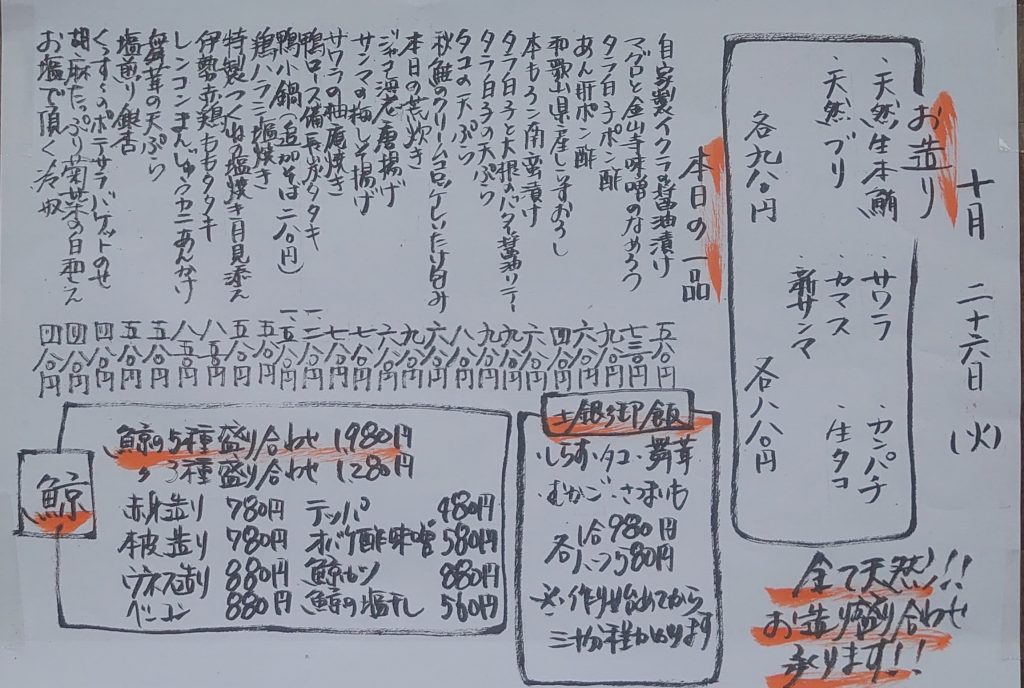 十月 二十六日 (火)
お造り
・天然生本鮪 サワラ カンパチ
・天然ブリ カマス 生タコ
・新サンマ
各九八〇円 各八八〇円
全て天然!!
お造り盛り合わせ
承ります!!
本日の一品
自家製イクラの醤油漬け 五八〇円
マグロと金山寺味噌のなめろう 七三〇円
タラ白子ポン酢 九八〇円
あん肝ポン酢 六八〇円
和歌山県産しらすおろし 四八〇円
本もろこ南蛮漬け 六八〇円
タラ白子と大根のバター醤油ソテー 九八〇円
タラ白子の天ぷら 九八〇円
タコの天ぷら 八八〇円
秋鮭のクリームコロッケしいたけ包み 六八〇円
本日の荒炊き 九八〇円
ジャコ海老唐揚げ 六八〇円
サンマの梅しそ揚げ 七八〇円
サワラの柚庵焼き 七八〇円
鴨ロース備長炭タタキ 一二八〇円
鴨小鍋(追加そば二八〇円) 一五八〇円
鶏ハラミ塩焼き 五八〇円
特製つくねの塩焼き月見添え 五八〇円
伊勢赤鶏ももタタキ 八五〇円
レンコンまんじゅうカニあんかけ 八五〇円
舞茸の天ぷら 五八〇円
塩煎り銀杏 五八〇円
くんすけのポテサラバゲットのせ 四八〇円
胡麻たっぷり菊菜の白和え 四八〇円
お塩で頂く冷奴 四八〇円
土鍋御飯
・しらす・タコ・舞茸
・むかご・さつまいも
各 1合980円
ハーフ580円
※作り始めてから
三十分程かかります
鯨
鯨の5種盛り合わせ 1,980円
〃 3種盛り合わせ 1,280円
赤身造り 780円 テッパ 480円
本皮造り 780円 オバケ酢味噌 580円
ウネス造り 880円 鯨カツ 880円
ベーコン 880円 鯨の塩干し 560円